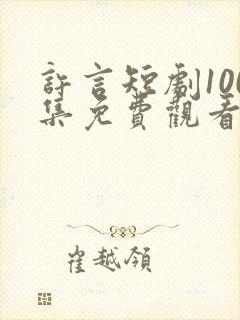 許言短劇100
集免費觀看
崔越領